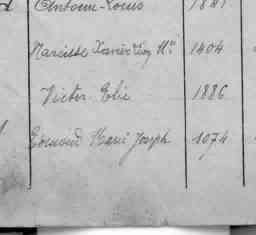 Antoine-Louis 1881
Narcisse Xavier Luy Mⁱᵉ 1404
Victor Elie 1886
Edmond Marie Joseph 1074